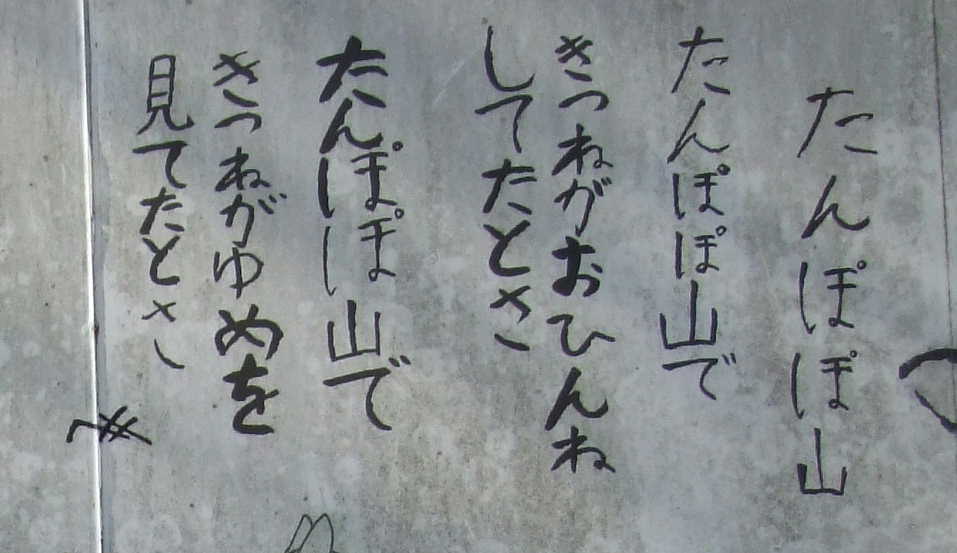 たんぽぽ山
たんぽぽ山で
きつねがおひんね
してたとさ
たんぽぽ山で
きつねがゆめを
見てたとさ